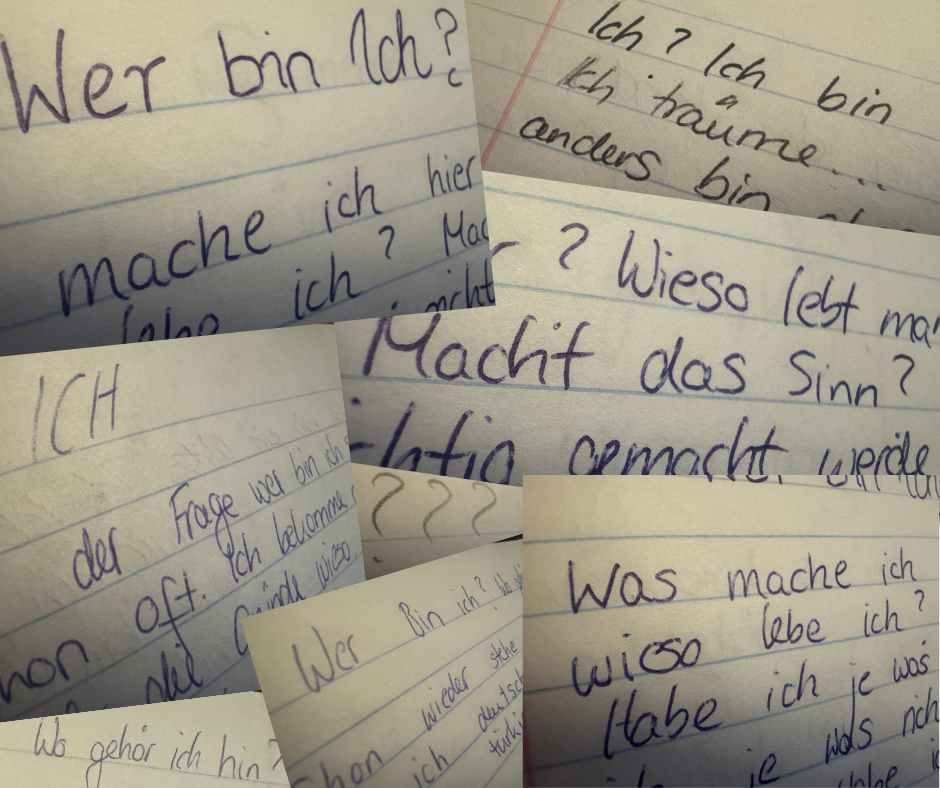 Wer bin Ich?
mache ich hier
lebe ich? Mac
nicht
Ich? Ich bin
Ich träume...
anders bin
? Wieso lebt man
Macht das Sinn?
chtig gemacht, werde
ICH
der Frage wer bin ich
hon oft. Ich bekomme
Gründe wieso
???
Wer Bin ich? Wo
hon wieder stehe
ich deutsch
türki
Was mache ich
wieso lebe ich?
Habe ich je was
je was rich
Wo gehör ich hin?